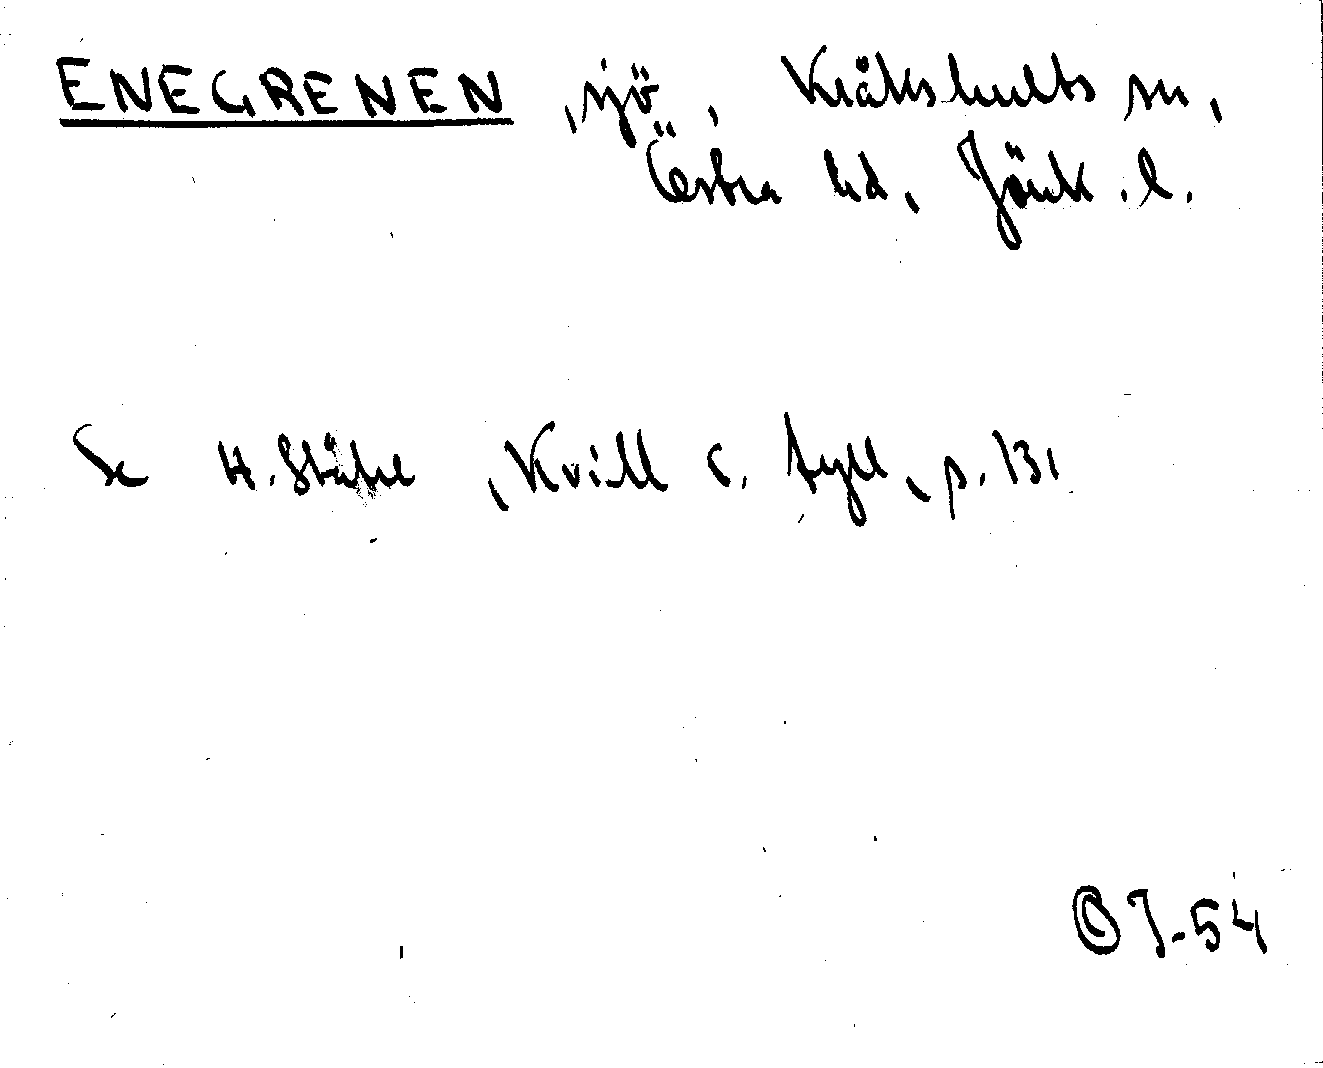 ENEGRENEN, sjö, Kråkshults sn,
Östra hd, Jönk. l.
Se H. Ståhle, Kvill o. Tyll, p. 131
J-54